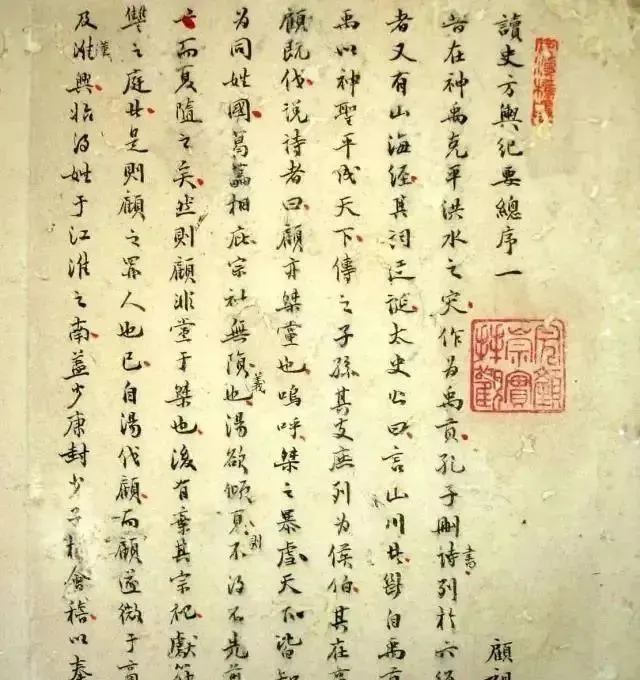 讀史方輿紀要總序一
顧祖
昔在神禹克平洪水之灾作為禹貢孔子刪詩書列於六經
者又有山海經其詞迂誕太史公曰言山川 自禹貢
禹以神聖平成天下傳之子孫其支庶列為侯伯其在
顧既伐説詩者曰顧亦桀黨也嗚呼桀之暴虐天下皆知
為同姓國葛藟相庇宗社無隕義也湯欲傾夏則不得不先
亡而夏隨之矣然則顧非黨于桀也後有棄其宗祀獻符
讐之庭 是則顧之罪人也已自湯伐顧而顧遂微于商
及漢興始得姓于江淮之南蓋少康封少子於會稽以奉
完顏
崇實
拜觀